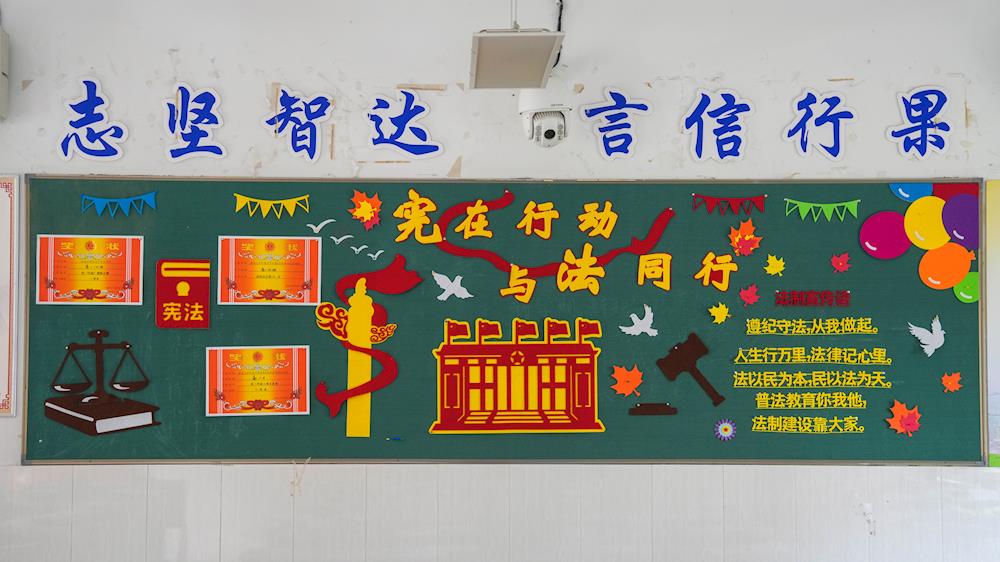 志坚智达 言信行果
宪在行动
与法同行
奖状
奖状
宪法
奖状
法制宣传语
遵纪守法,从我做起。
人生行万里,法律记心里。
法以民为本,民以法为天。
普法教育你我他,
法制建设靠大家。